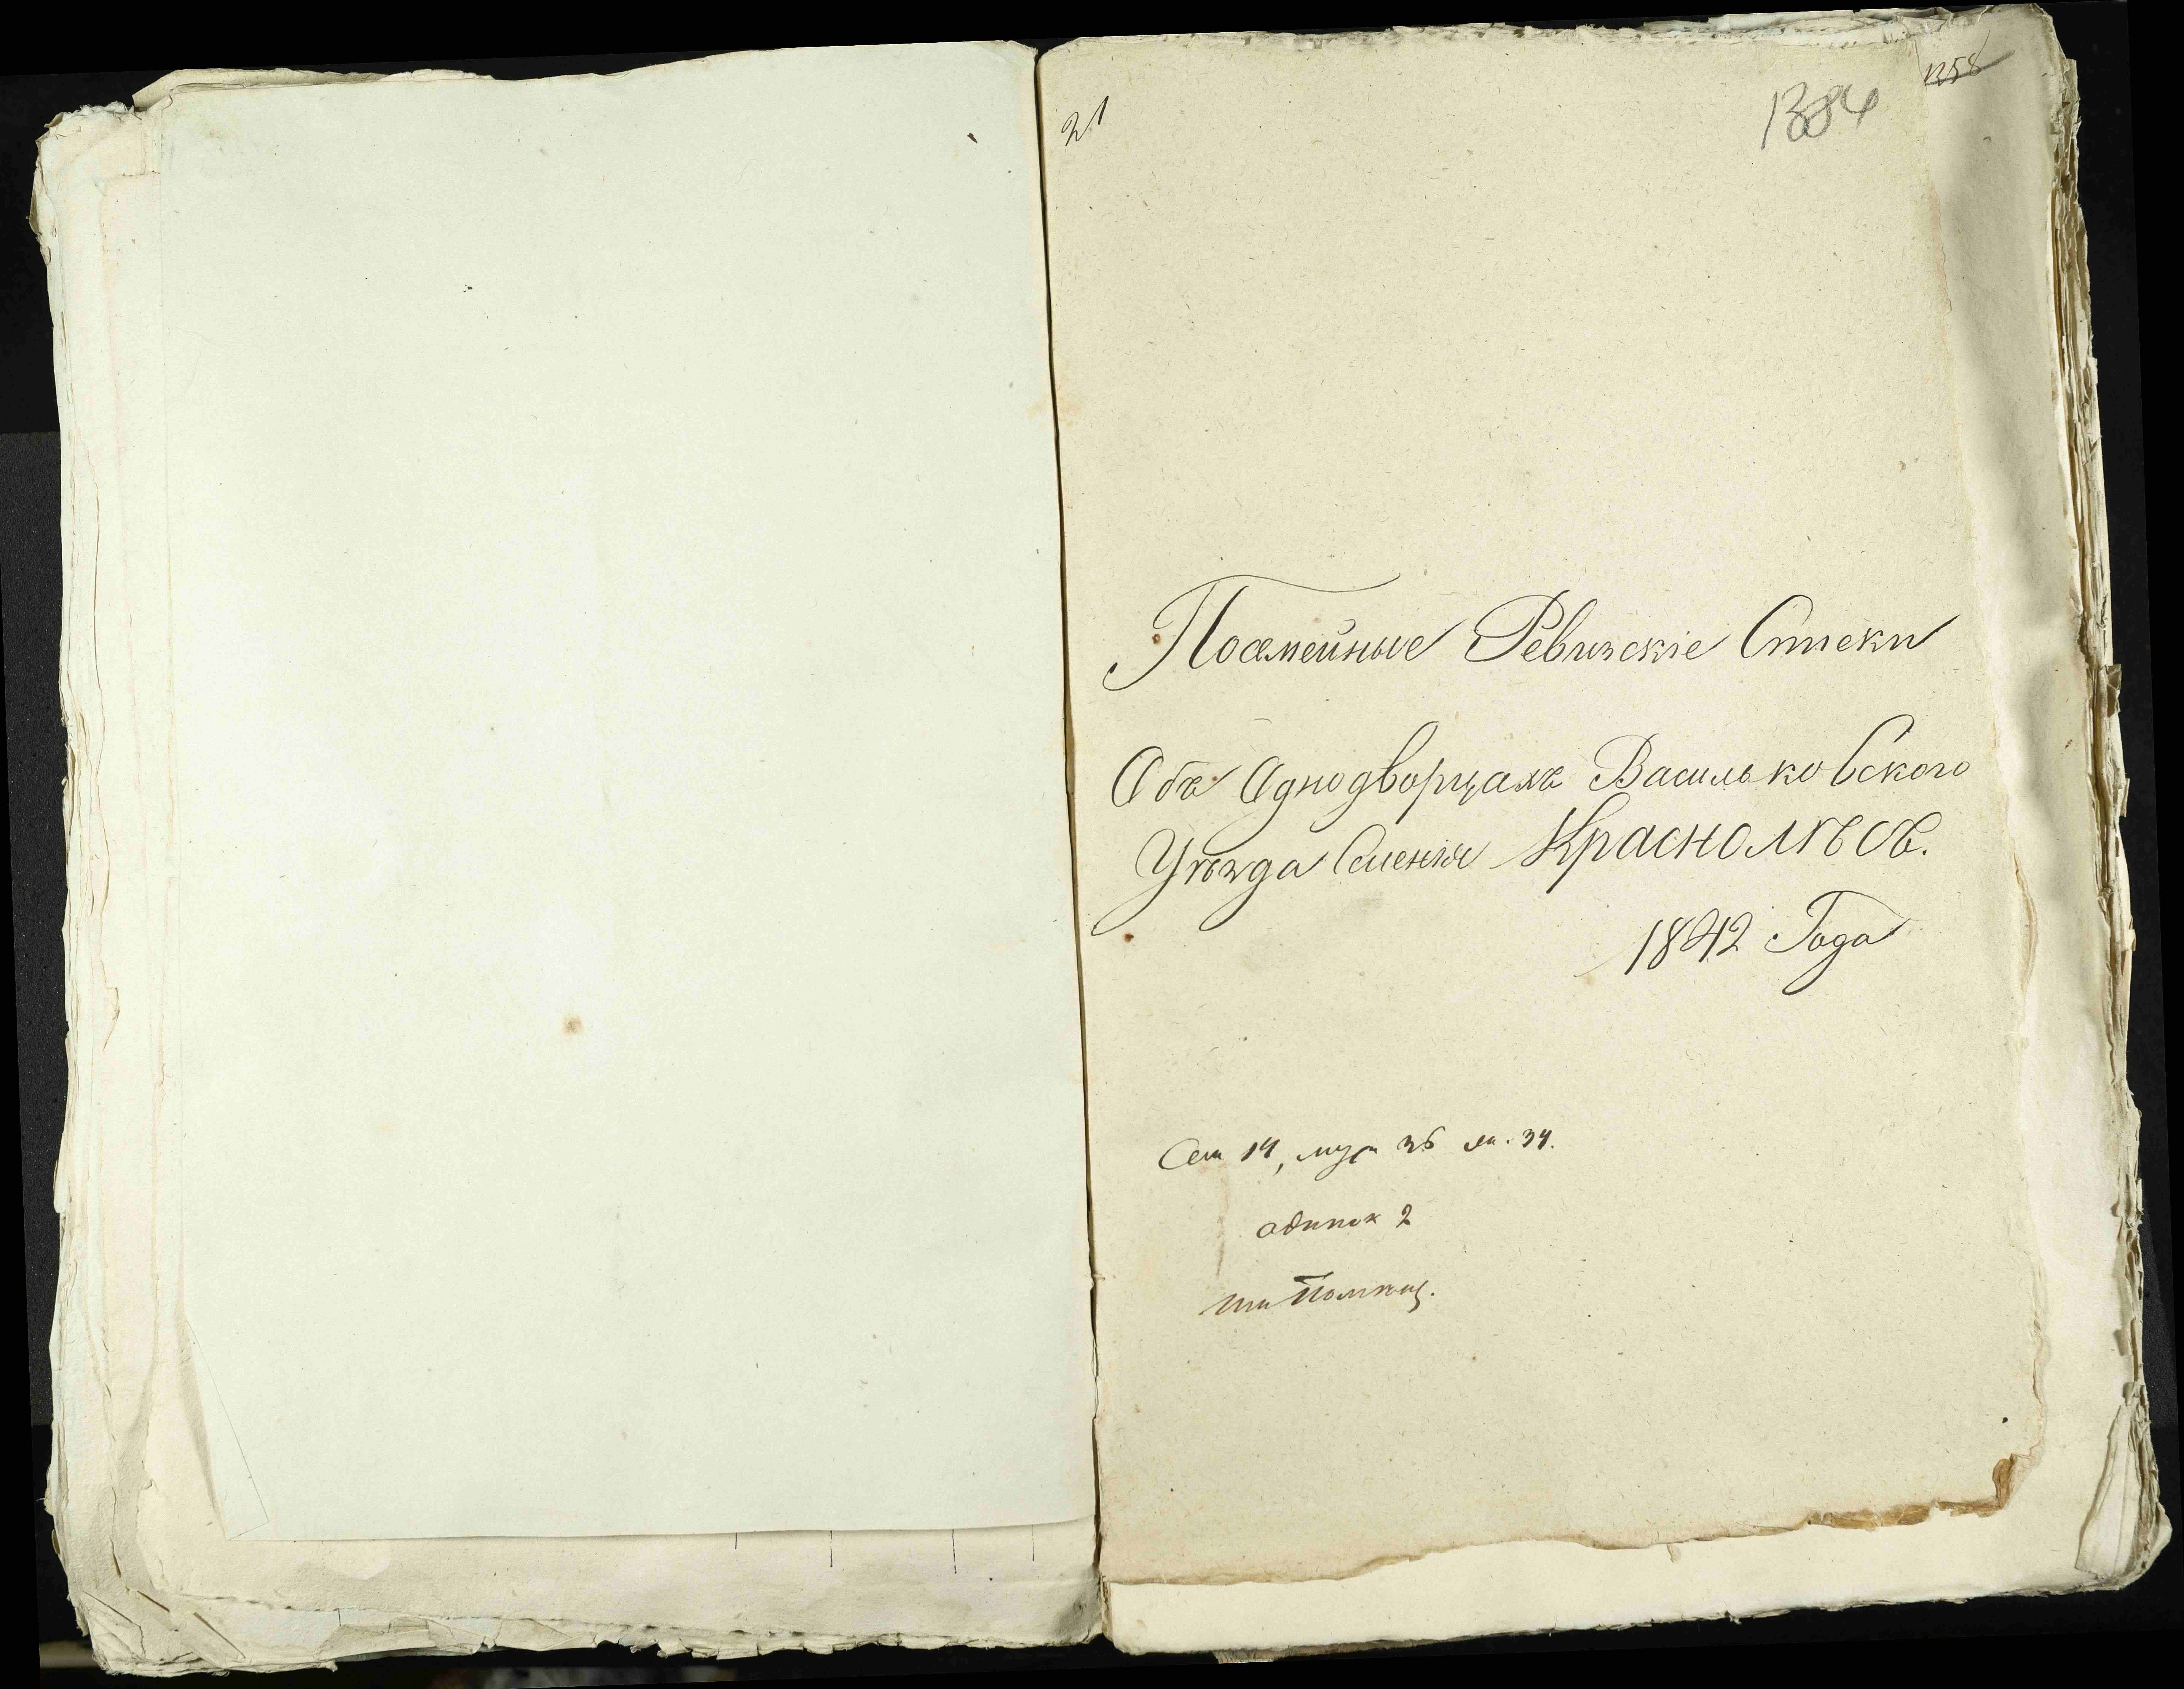 21
1384
1258
Посемейные Ревизскіе Списки
Объ Однодворцахъ Васильковского
Уѣзда Селенія Краснолѣсъ.
1842 Года
Сем 14, муж 36 жен. 34.
одинок 2